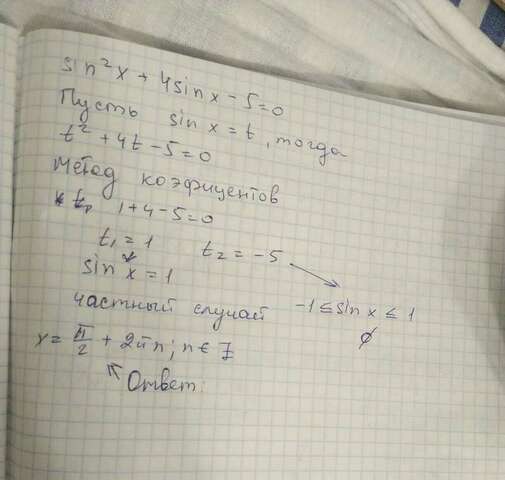 sin²x + 4sinx - 5 = 0
Пусть sin x = t, тогда
t² + 4t - 5 = 0
Метод коэфицентов
1 + 4 - 5 = 0
t₁ = 1 t₂ = -5
sin x = 1
частный случай -1 ≤ sin x ≤ 1
∅
x = π/2 + 2πn; n ∈ Z
Ответ: